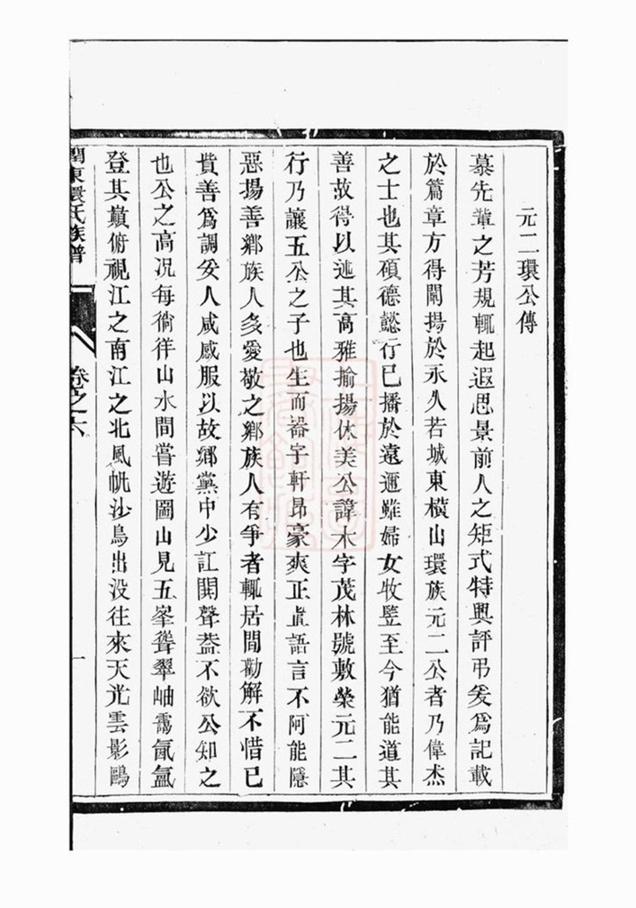 元二環公傳
慕先輩之芳規輒起遐思景前人之矩式特興評弔爰為記載
於篇章方得闡揚於永久若城東橫山環族元二公者乃偉杰
之士也其碩德懿行已播於遠邇雖婦女牧豎至今猶能道其
善故得以述其高雅揄揚休美公諱木字茂林號敷榮元二其
行乃讓五公之子也生而器宇軒昂豪爽正直語言不阿能隱
惡揚善鄉族人多愛敬之鄉族人有爭者輒居間勸解不惜已
貲善為調妥人咸感服以故鄉黨中少訌鬨聲葢不欲公知之
也公之高况每徜徉山水間嘗遊圌山見五峯聳翠岫靄氤氳
登其巔俯視江之南江之北風帆沙鳥出没往來天光雲影鷗
閏東環氏族譜
卷之六
一